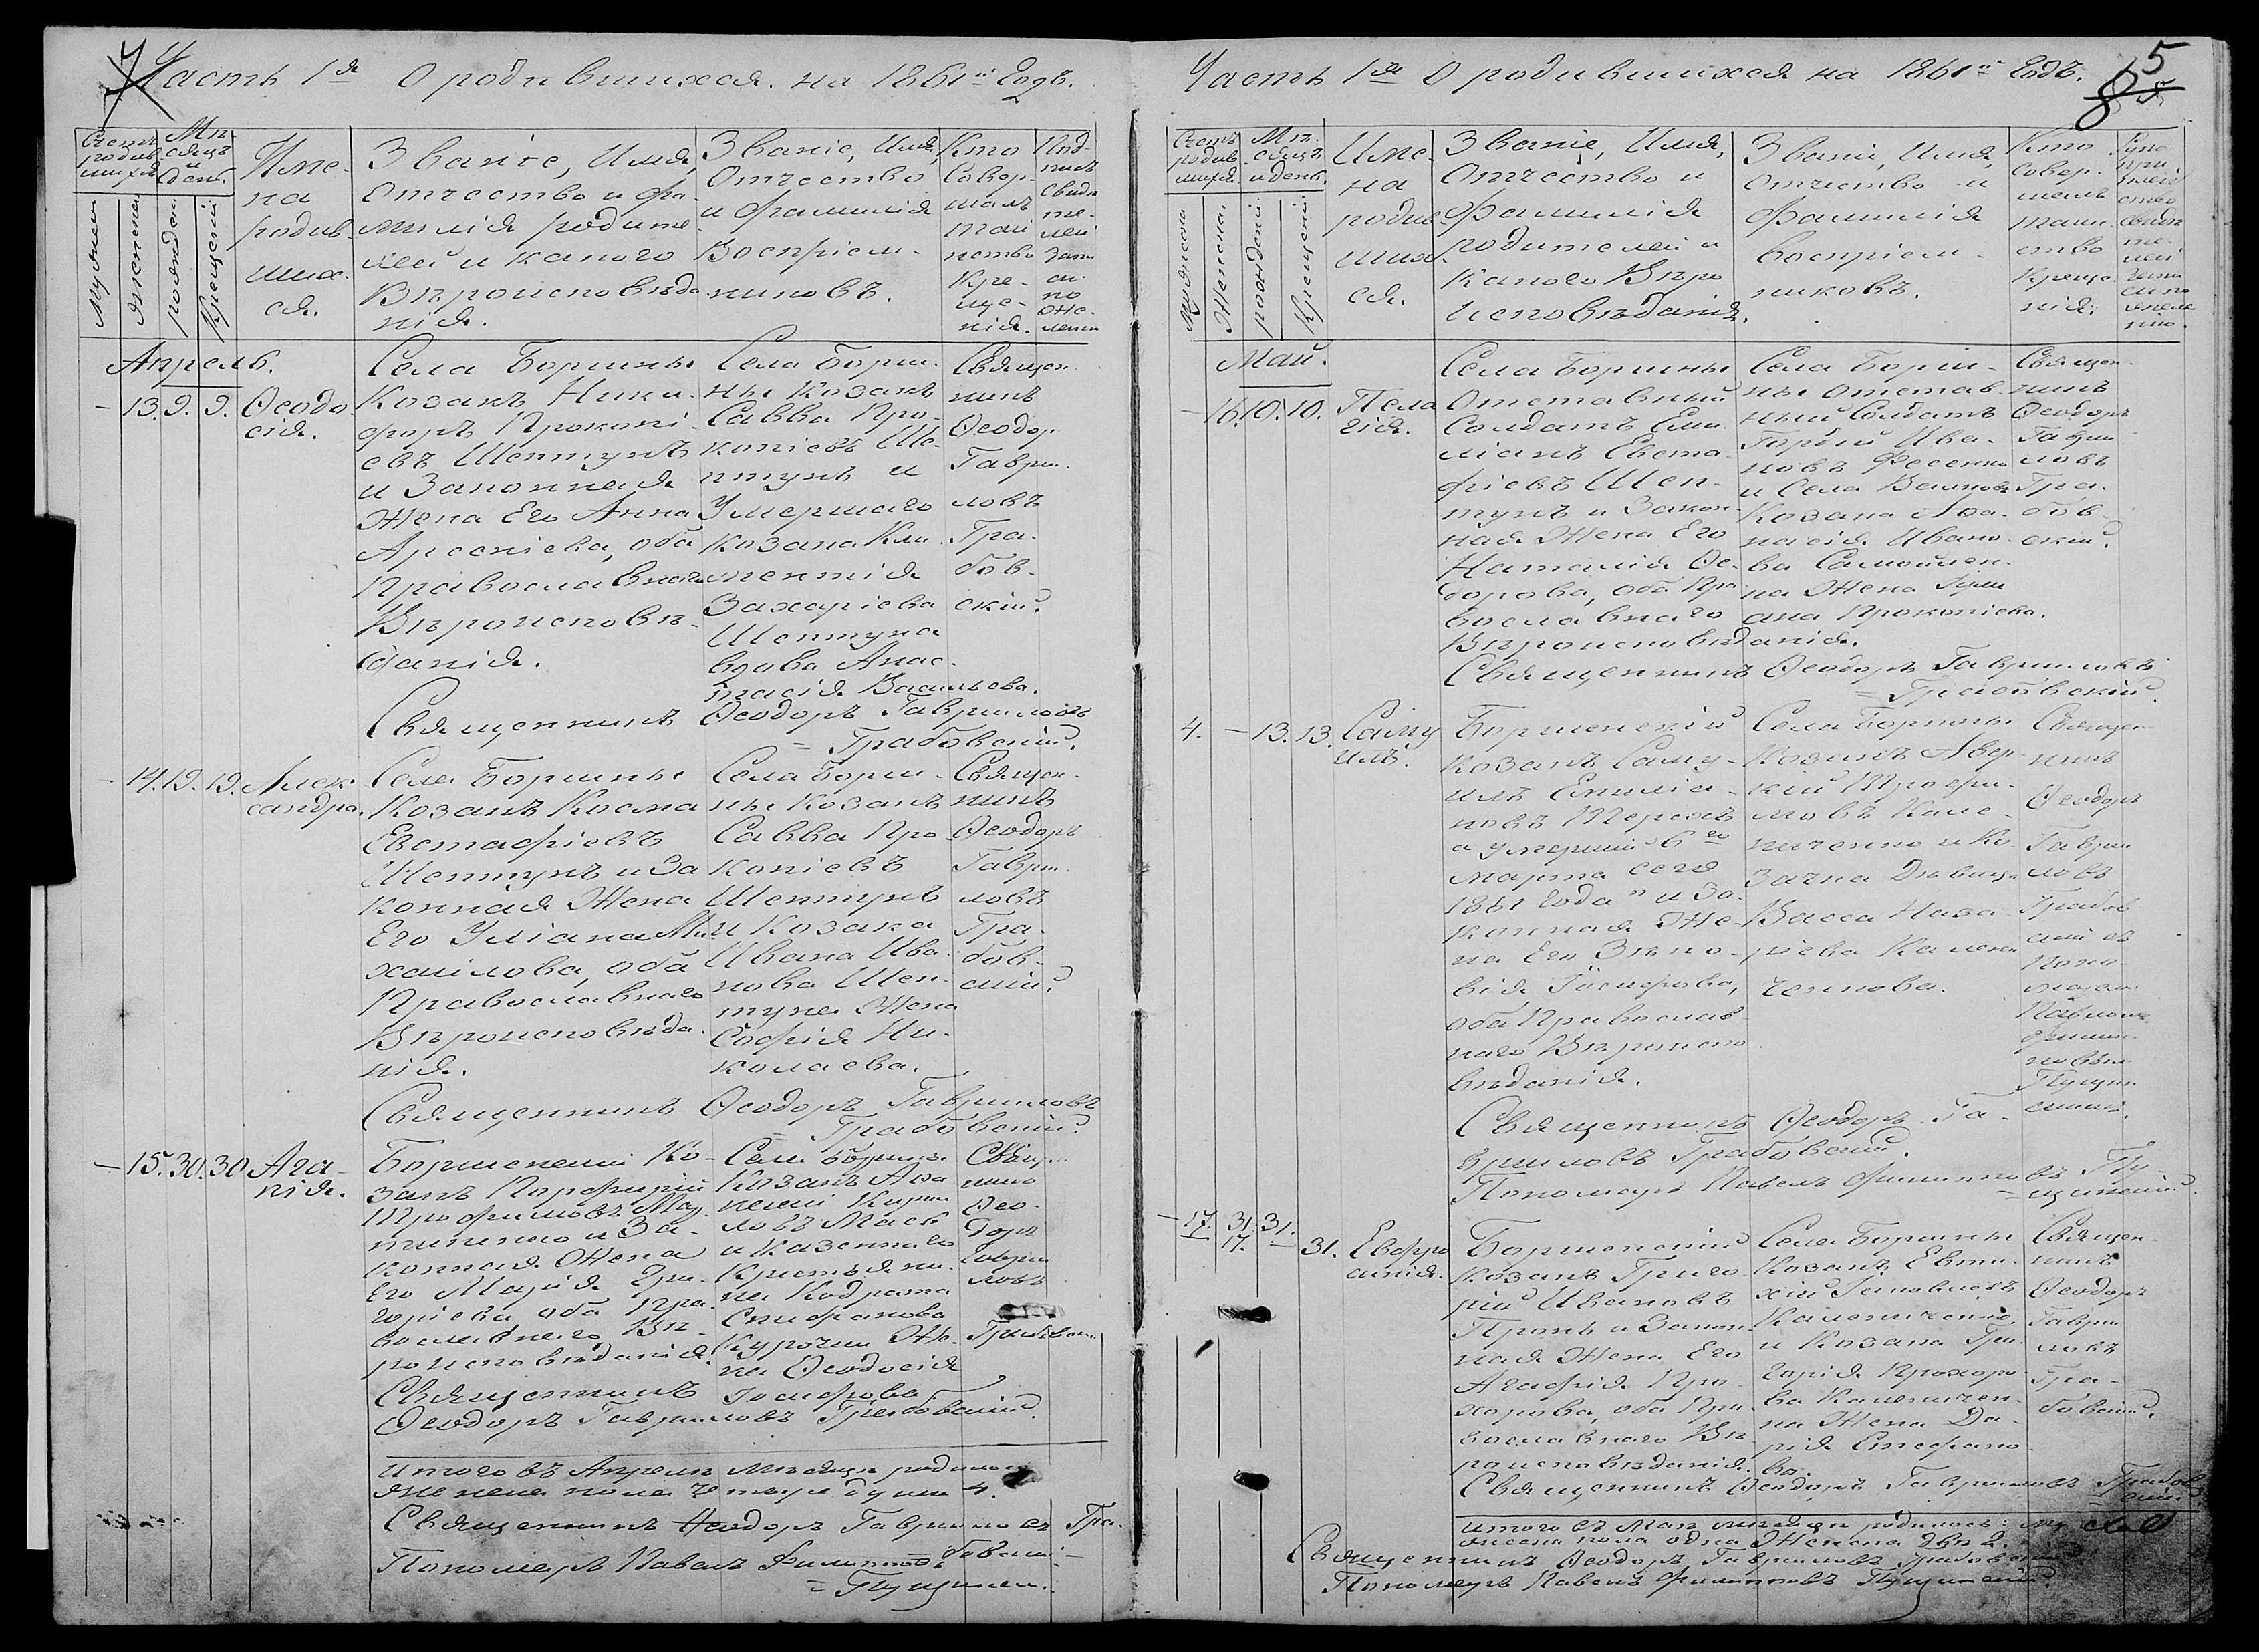 Часть 1я О родившихся на 1861й Годъ.
Счетъ родив-
шихся
Мѣ-
сяцъ
и
день.
Име-
на
родив-
ших-
ся.
Званіе, Имя,
Отчество и фа-
милія родите-
лей и какого
Вѣроисповѣда-
нія.
Званіе, Имя,
Отчество
и фамилія
Воспріем-
никовъ.
Кто
Совер-
шалъ
таи-
нство
Кре-
ще-
нія.
Мужеска
Женска
рожденія
Крещенія
Апрель.
13. 9. 9.
Ѳеодо-
сія.
Села Боршны
Козакъ Ники-
форъ Прокопі-
евъ Шептунъ
и Законная
Жена Его Анна
Арсеніева, оба
Православнаго
Вѣроисповѣ-
данія.
Села Борш-
ны Козакъ
Савва Про-
копіевъ Ше-
птунъ и
Умершаго
Козака Кли-
ментія
Захаріева
Шептуна
вдова Анас-
тасія Васильева.
Священ-
никъ
Ѳеодор
Гаври-
ловъ
Гра-
бов-
скій
Священникъ Ѳеодоръ Гавриловъ
Грабовскій.
14. 19. 19.
Алек-
сандра.
Села Боршны
Козакъ Косма
Евстафіевъ
Шептунъ и За
конная Жена
Его Уліана Ми-
хаилова, оба
Православнаго
Вѣроисповѣда-
нія.
Села Борш-
ны Козакъ
Савва Про-
копіевъ
Шептунъ
и Козака
Ивана Ива-
нова Шеп-
туна Жена
Софія Ни-
колаева.
Священ-
никъ
Ѳеодоръ
Гаври-
ловъ
Гра-
бов-
скій
Священникъ Ѳеодоръ Гавриловъ
Грабовскій
15. 30. 30
Ага-
пія.
Боршенскій Ко-
закъ Порфирій
Трофимовъ
и За-
конная Жена
Его Марія Гри-
горіева оба Пра-
вославнаго Вѣ-
роисповѣданія.
Села Боршны
Козакъ
и Казеннаго
Крестьяни-
на Кодрата
Стефанова
Же-
на Ѳеодосія
Іосифова.
Ѳео-
доръ
Гаври-
ловъ
Священникъ
Ѳеодоръ Гавриловъ Грабовскій
Итого въ Апрелѣ Мѣсяцѣ родилось
женска пола четыре души 4.
Священникъ Ѳеодоръ Гавриловъ Гра-
бовскій
Пономарь Павелъ Филиповъ
Часть 1я О родившихся на 1861й Годъ.
5
8
Счетъ
родив-
шихся
Мѣ-
сяцъ
и день.
Име-
на
родив-
ших-
ся.
Званіе, Имя,
Отчество и
Фамилія
родителей и
какого Вѣро
исповѣданія.
Званіе, Имя,
Отчество и
Фамилія
воспріем-
никовъ.
Кто
совер-
шалъ
таин-
ство
Креще-
нія.
Мужеска
Женска
рожденія
Крещенія
Май.
16. 10. 10.
Пела
гія.
Села Боршны
Отставный
Солдатъ Еми-
ліанъ Евста-
фіевъ Шеп-
тунъ и Закон-
ная Жена Его
Наталія Ѳе-
дорова, оба Пра-
вославнаго
Вѣроисповѣданія.
Села Борш-
ны отстав-
ный Солдатъ
Гордій Ива-
новъ Фесенко
и Села
Козака Аѳа-
насія Ивано-
ва Самойлен-
ка Жена Іули
ана Прокопіева.
Священ-
никъ
Ѳеодоръ
Гаври-
ловъ
Гра-
бов-
скій.
Священникъ Ѳеодоръ Гавриловъ
Грабовскій
4. 13. 13.
Саму
илъ.
Боршенскій
козакъ Саму-
илъ Емилia-
новъ
а умершій 6го
марта сего
1861 года и За-
конная Же-
на Его Зѣно-
вія Іосифова,
оба Православ
наго Вѣроиспо
вѣданія.
Села Боршны
Козакъ Авер-
кій Трофи-
мовъ Кале-
ниченко и Ко-
зачка Дѣвица
Васса Наза-
ріева Калени
ченкова.
Священ-
никъ
Ѳеодоръ
Гаври
ловъ
Грабов
скій съ
Поно-
Священникъ Ѳеодоръ Га-
вриловъ Грабовскій.
Пономарь Павелъ Филиповъ
17. 31. 31.
17.
31.
Евфро
синія.
Боршенскій
Козакъ Григо-
рій Ивановъ
и Закон-
ная Жена Его
Агафія Про-
хорова, оба Пра-
вославнаго Вѣ
роисповѣданія.
Села Боршны
Козакъ Евти-
хій
Калениченко
и Козака Гри-
горія Прохоро-
ва Каленичен-
ка Жена Да-
рія Стефано-
ва.
Священ-
никъ
Ѳеодоръ
Гаври
ловъ
Гра-
бовскій.
Священникъ Ѳеодоръ Гавриловъ Грабов
скій
Итого въ Маѣ мѣсяцѣ родилось: му
жеска пола одна Женска двѣ 2.
Священникъ Ѳеодоръ Гавриловъ Грабовскій
Пономарь Павелъ Филиповъ